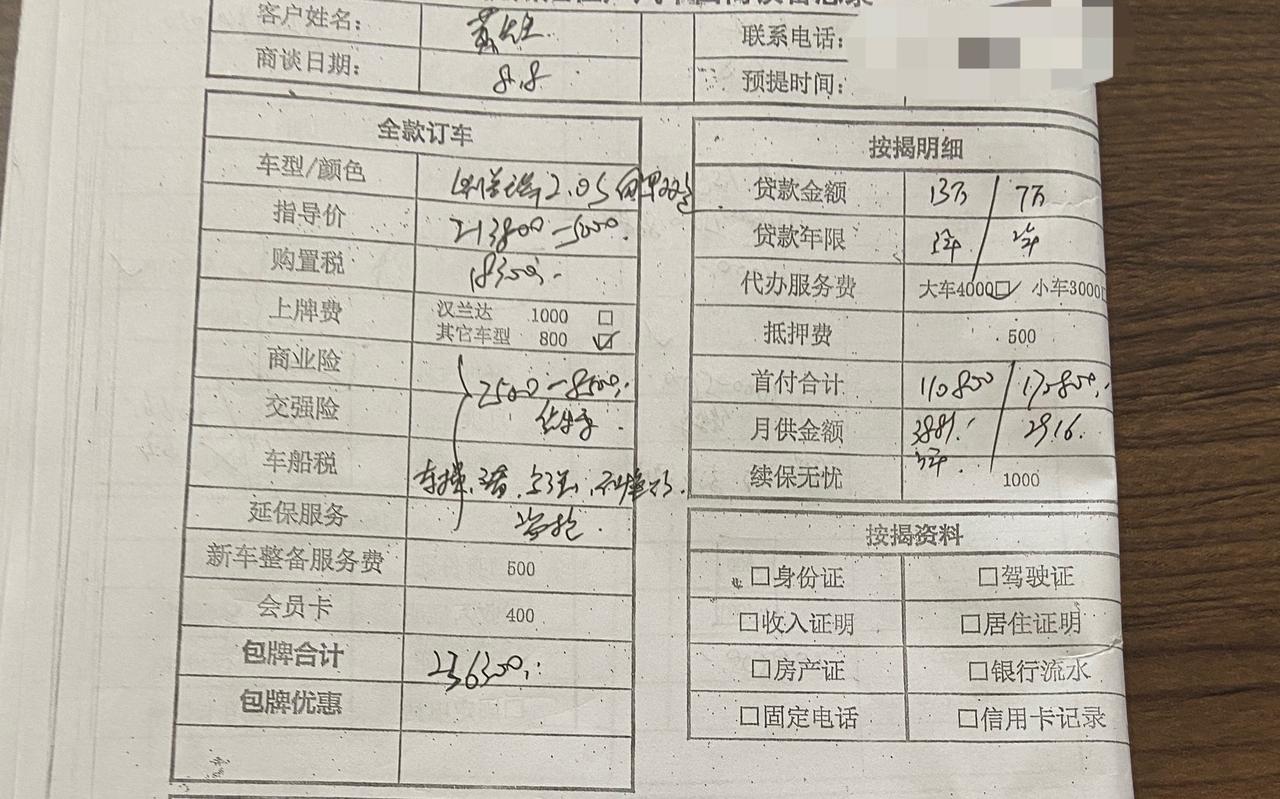 客户姓名：
商谈日期： 8.8
联系电话：
预提时间：
全款订车
车型/颜色 2.0S
指导价 213800-5000.
购置税 18300
上牌费 汉兰达 1000 □
其它车型 800 ☑
商业险
交强险 7500-8500
车船税
延保服务
新车整备服务费 500
会员卡 400
包牌合计 236300
包牌优惠
按揭明细
贷款金额 13万 / 7万
贷款年限 3年 / 2年
代办服务费 大车4000☑ 小车3000□
抵押费 500
首付合计 110800 / 170800
月供金额 3881 / 2916.
3年.
续保无忧 1000
按揭资料
□身份证 □驾驶证
□收入证明 □居住证明
□房产证 □银行流水
□固定电话 □信用卡记录